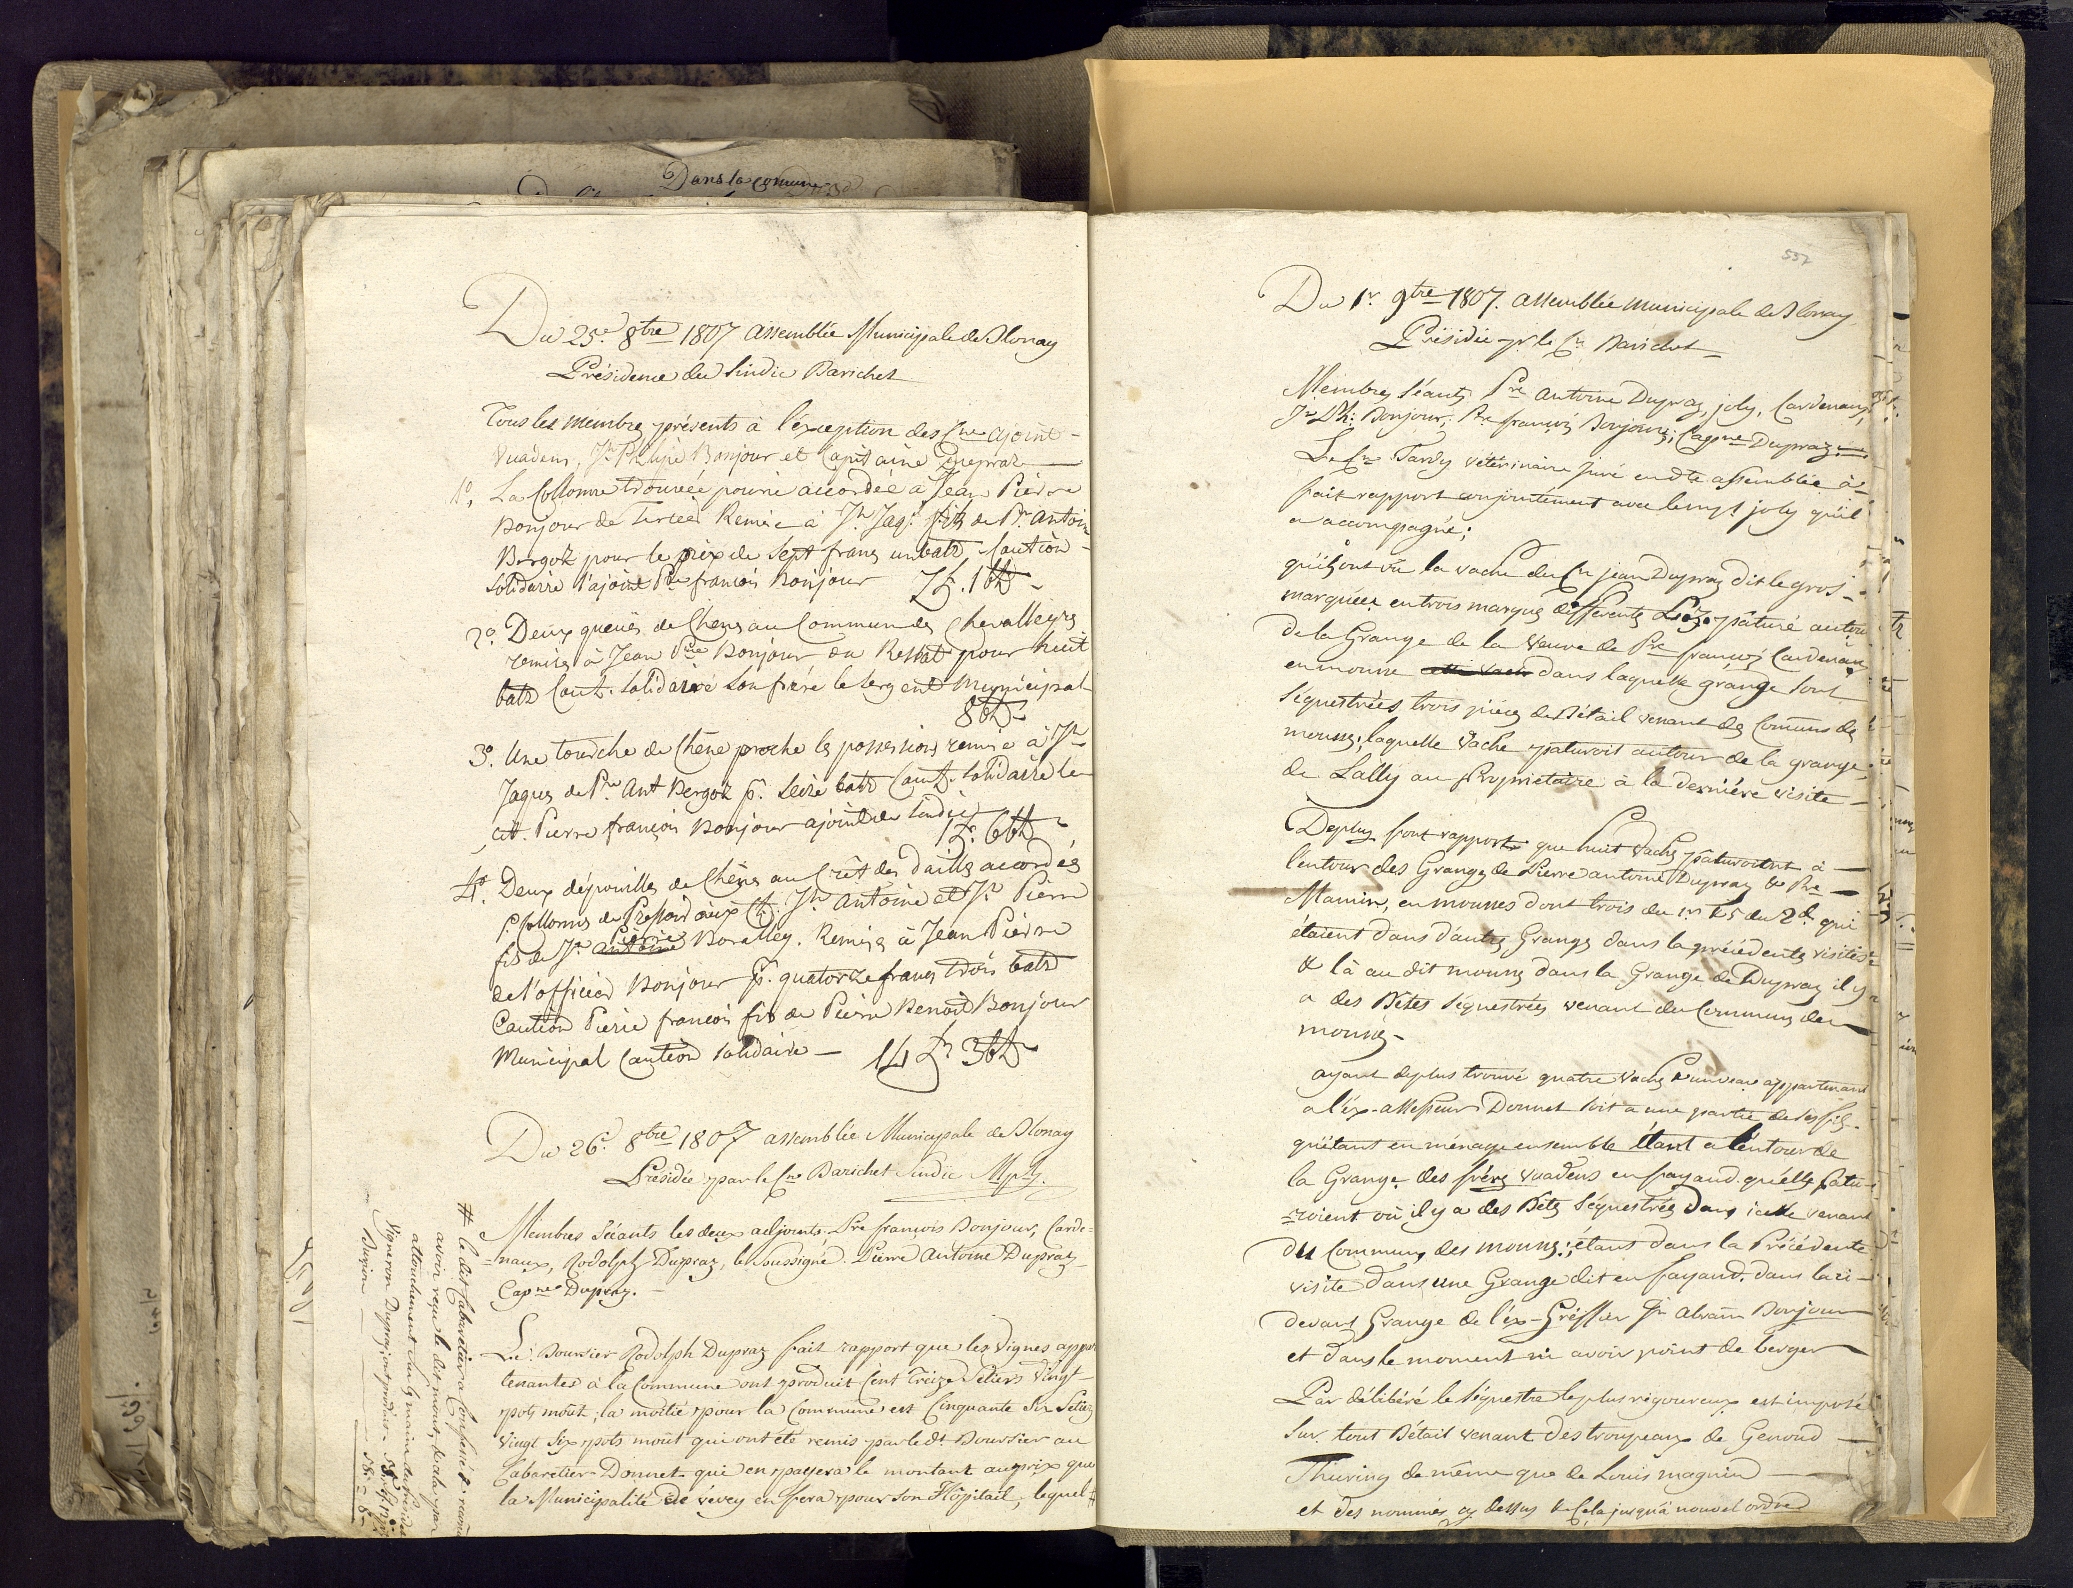 Dans la Comune
Du 25.e 8bre 1807 assemblée Municipale de Blonay
Présidence du Sindic Barichet
Tous les membres présents à l'éxception des Cns ajoint
Vuadens, Jn Philipe Bonjour et Capitaine Dupraz
1o, La Collonne trouvée pourie accordée à Jean Pierre
Bonjour de Tercier Remise à Jn Jaqs fils de Pre Antoine
Bergoz pour le prix de Sept francs un batz, Caution
solidaire l'ajoint Pre françois Bonjour 7 f. 1 btz
2o. Deux queües de Chens au Commun des Chevalleyres
remises à Jean Pre Bonjour du pour huit
batz Caut. Solidaire son frère le sergent Municipal
8 btz
3o. Une tronche de Chêne proche les possessions remise à Jn
Jaques de Pre Ant Bergoz p. Seize batz Caut. Solidaire le
cit. Pierre françois Bonjour ajoint du Sindic
1 f. 6 btz
4o. Deux dépouilles de Chênes au Crêt des Dailles accordés
p. Collonnes de Pressoir aux Cn Jn Antoine et Jn Pierre
Pierre
fils de Jn antoine Boralley. Remises à Jean Pierre
de l'officier Bonjour p. quatorze francs trois batz
Caution Pierre francois fils de Pierre Benoit Bonjour
Municipal Caution solidaire — 14 f 3 btz
Du 26.e 8bre 1807 assemblée Municipale de Blonay
Présidée par le Cn Barichet Sindic
Membres Séants les deux adjoints. Pre françois Bonjour, Carde-
-naux, Rodolph Dupraz, le Soussigné. Pierre Antoine Dupraz
Capne Dupraz.
Le Boursier Rodolph Dupraz fait rapport que les Vignes appar
tenantes à la Commune ont produit Cent Treize Setiers Vingt
pots moût, la moitié pour la Commune est Cinquante Six Setiers
Vingt Six pots moût qui ont été remis par le dt Boursier au
Cabaretier Donnet qui en payera le montant au prix que
la Municipalité de Vevey en fera pour son Hôpital, lequel #
# le dit Cabaretier a Confessé & reconu
avoir reçu le dit mout, de la par
attouchement sur les mains du Présidet
Vigneron Dupraz ont produit
557
Du 1r 9bre 1807. assemblée municipale de Blonay
Présidée pr le Cn Barichet
Membres Séants Pre Antoine Dupraz, joly, Cardenaux,
Jn Ph: Bonjour, Pre françois Bonjour, Capne Dupraz
Le Cn Tardy vétérinaire Juré en dte assemblée à
fait rapport conjointement avec le mpl joly qu'il
a accompagné;
qu'ils ont vu la vache du Cn jean Dupraz dit le gros
marquée en trois marques differentes pâturé autour
de la Grange de la veuve de Pre françois Cardenaux
en mousse dans laquelle grange sont
séquestrées trois pièces de Bétail venant des Comuns des
mousses, laquelle Vache paturoit autour de la grange
de Lally au Propriétaire à la dernière visite
Deplus font rapport que huit vaches paturoient à
l'entour des Granges de Pierre antoine Dupraz & Pre
Mamin, en mousses dont trois du 1er & 5 du 2d. qui
étaient dans d'autres Granges dans la précédente visite
& là au dit mousses dans la Grange de Dupraz il y
a des Bêtes séquestrées venant du Commun des
mousses
ayant deplus trouvé quatre vaches & un veau appartenant
a l'éx-assesseur Donnet soit à une partie de ses fils
qu'étant en ménage ensemble étant a l'entour de
la Grange des frères Vuadens en fayaud. qu'elles patu-
-roient où il y a des Bêtes séquestrées dans icelle venant
du Commun des mousses; étant dans la Précédente
visite dans une Grange dit en fayaud. dans la ci-
devant Grange de l'éx-Gréffier Jn Abram Bonjour
et dans le moment ni avoir point de berger
Par délibéré le séquestre le plus rigoureux est imposé
sur tout Bétail venant des troupeaux de Genoud
Thuring de même que de Louis magnin
et des nommés cy dessus & Cela jusqu'à nouvel ordre